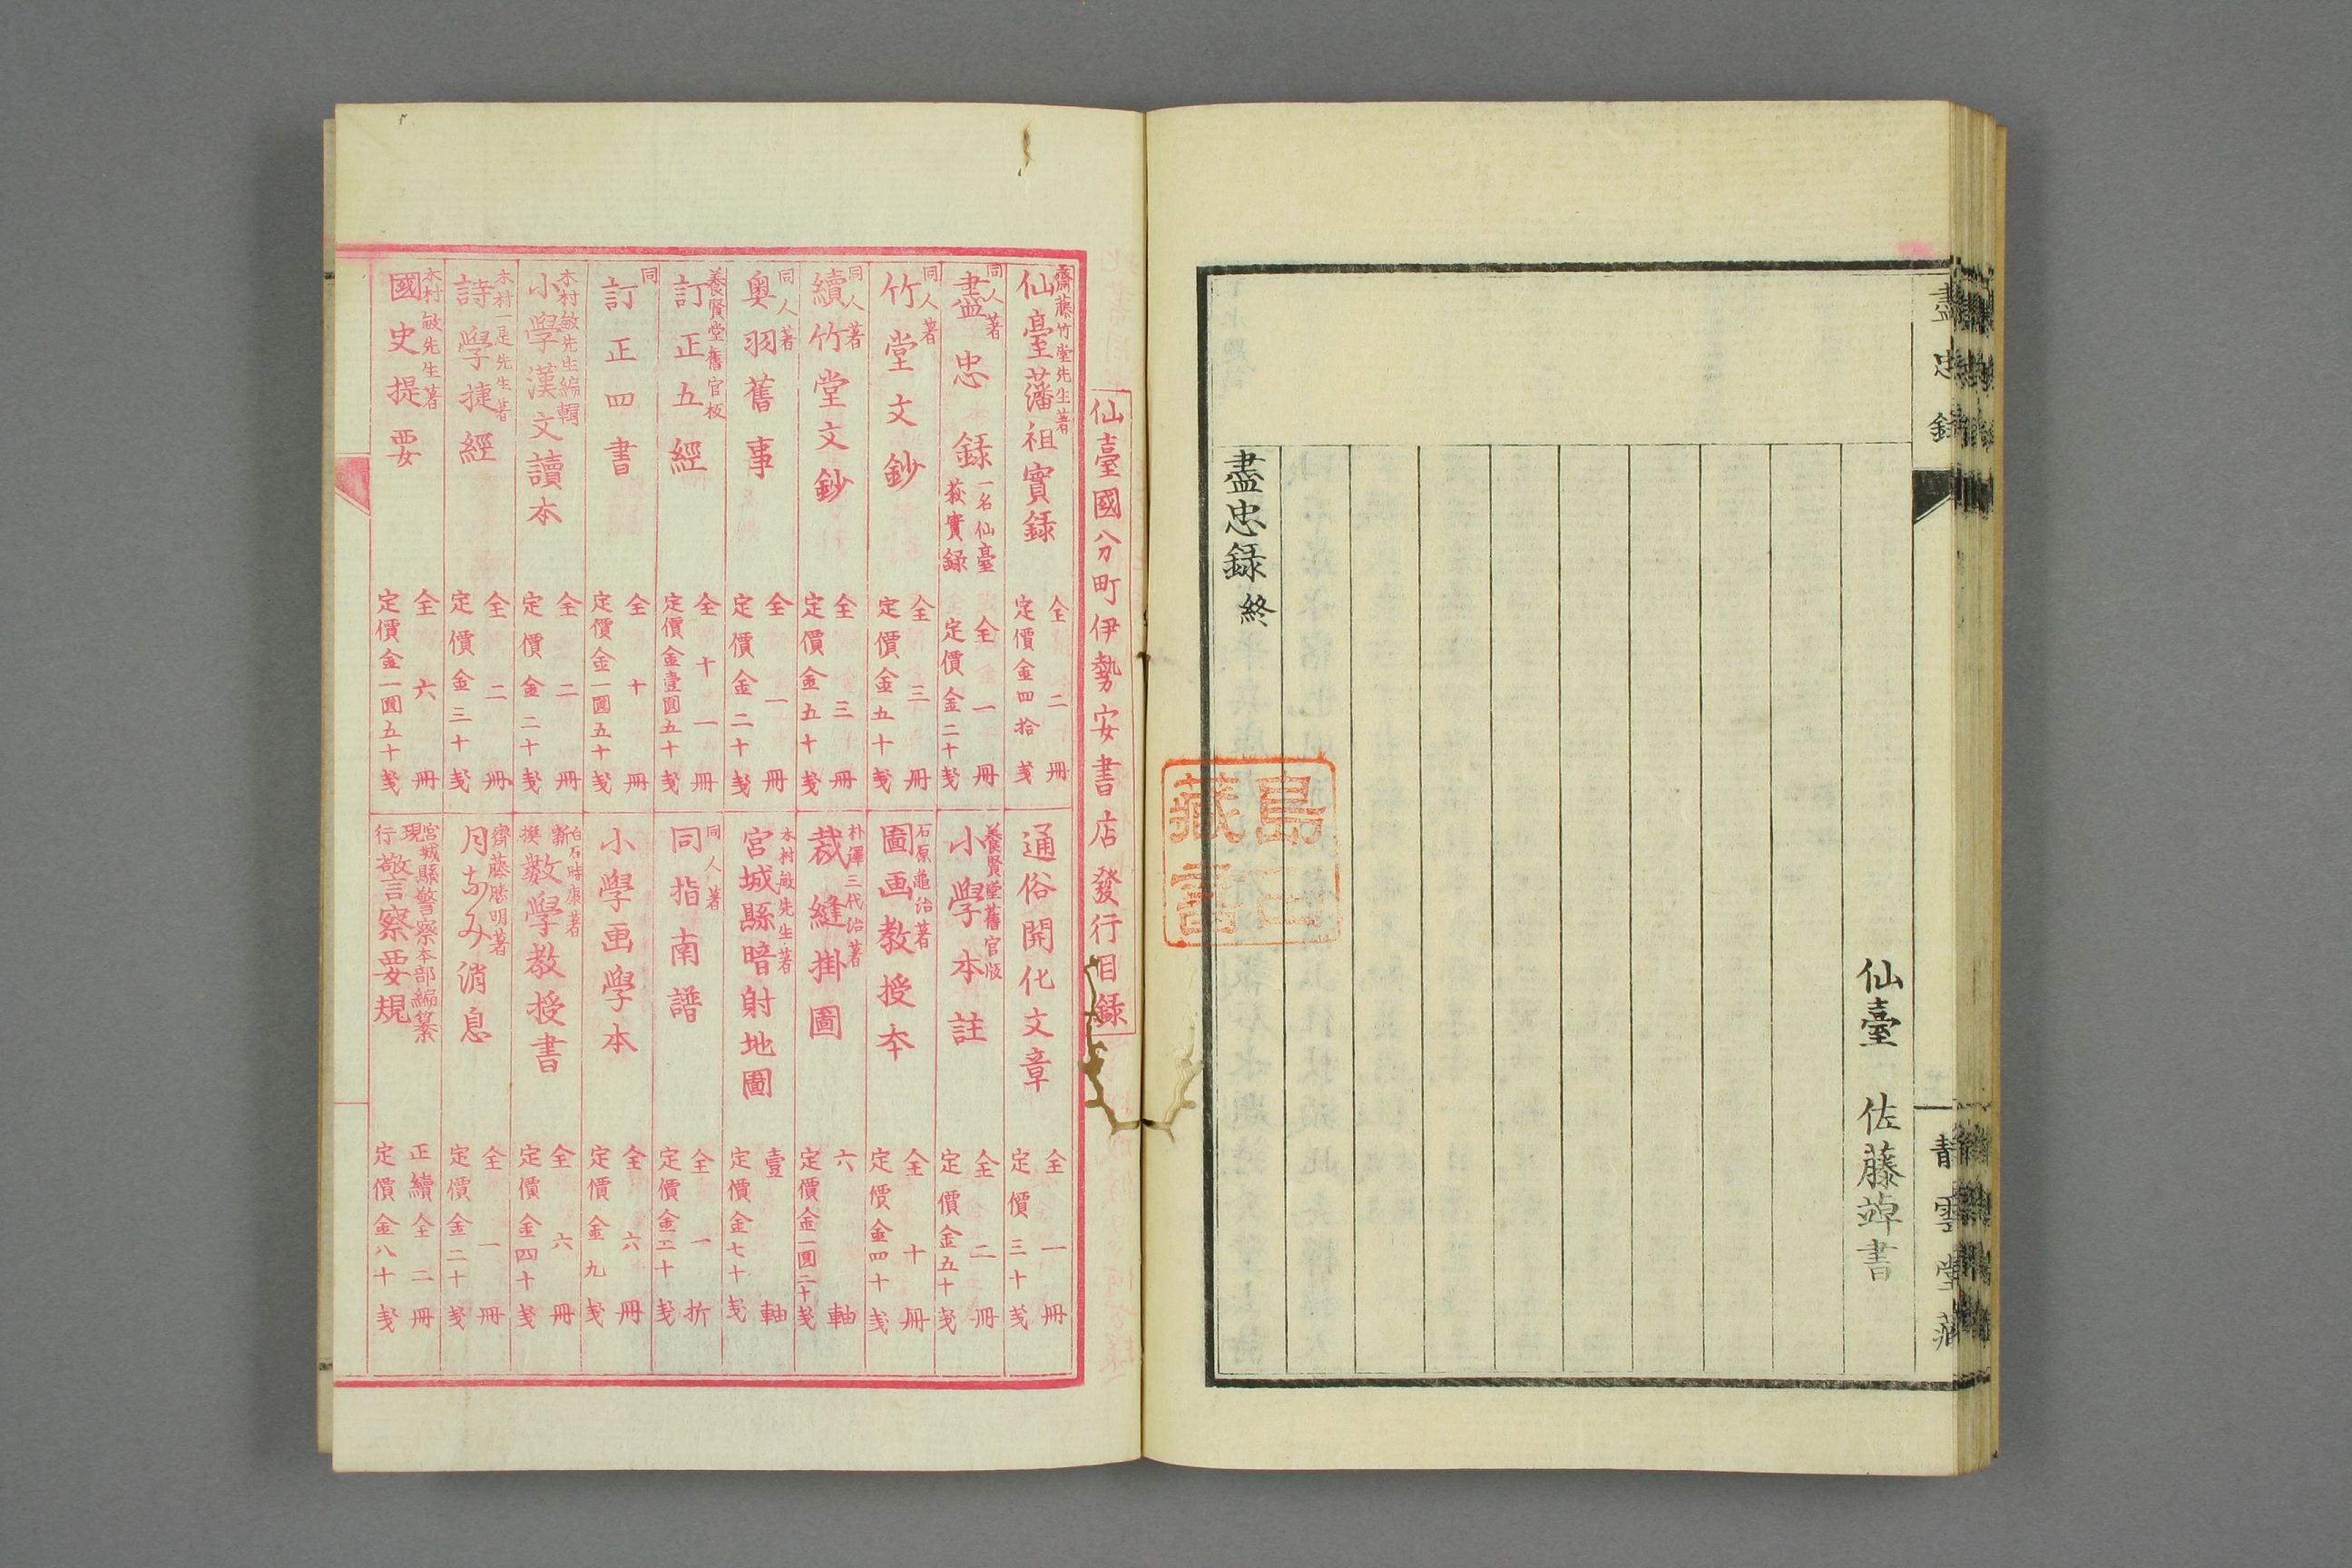 盡忠錄
靑雲堂藏
仙臺 佐藤竧書
盡忠録 終
島三藏書
仙臺國分町伊勢安書店發行目録
齋藤竹堂先生著
仙臺藩祖實録 全二冊 定價金四拾戔
同人著
盡忠録 一名仙臺萩實録 全一冊 定價金二十戔
同人著
竹堂文鈔 全三冊 定價金五十戔
同人著
續竹堂文鈔 全三冊 定價金五十戔
同人著
奥羽舊事 全一冊 定價金二十戔
養賢堂舊官板
訂正五經 全十一冊 定價金壹圓五十戔
同
訂正四書 全十冊 定價金一圓五十戔
木村敏先生編輯
小學漢文讀本 全二冊 定價金二十戔
木村一是先生著
詩學捷經 全二冊 定價金三十戔
木村敏先生著
國史提要 全六冊 定價金一圓五十戔
通俗開化文章 全一冊 定價三十戔
養賢堂舊官版
小學本註 全二冊 定價金五十戔
石原亀治著
圖画教授本 全十冊 定價金四十戔
朴澤三代治著
裁縫掛圖 六軸 定價金一圓二十戔
木村敏先生著
宮城縣暗射地圖 壹軸 定價金七十戔
同人著
同指南譜 全一折 定價金二十戔
小學画學本 全六冊 定價金九戔
白石時康著
新撰數學教授書 全六冊 定價金四十戔
齋藤勝明著
月なみ消息 全一冊 定價金二十戔
宮城縣警察本部編纂
現行警察要規 正續全二冊 定價金八十戔